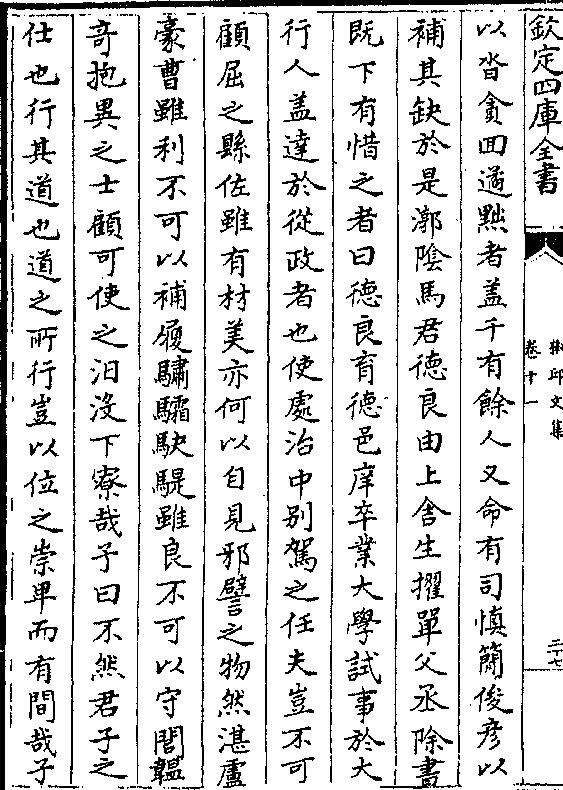 欽定四庫全書
椒邱文集
卷十一
二十七
以沓貪回遹黜者盖千有餘人又命有司慎簡俊彦以
補其缺於是漷陰馬君德良由上舍生擢單父丞除書
既下有惜之者曰德良育德邑庠卒業大學試事於大
行人盖達於從政者也使處治中别駕之任夫豈不可
顧屈之縣佐雖有材美亦何以自見邪譬之物然湛盧
豪曹雖利不可以補履驌驦駃騠雖良不可以守閭韞
奇抱異之士顧可使之汨没下寮哉子曰不然君子之
仕也行其道也道之所行豈以位之崇卑而有間哉子